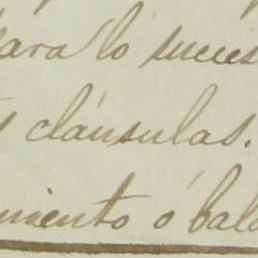 para lo suces
s cláusulas.
miento ó bala